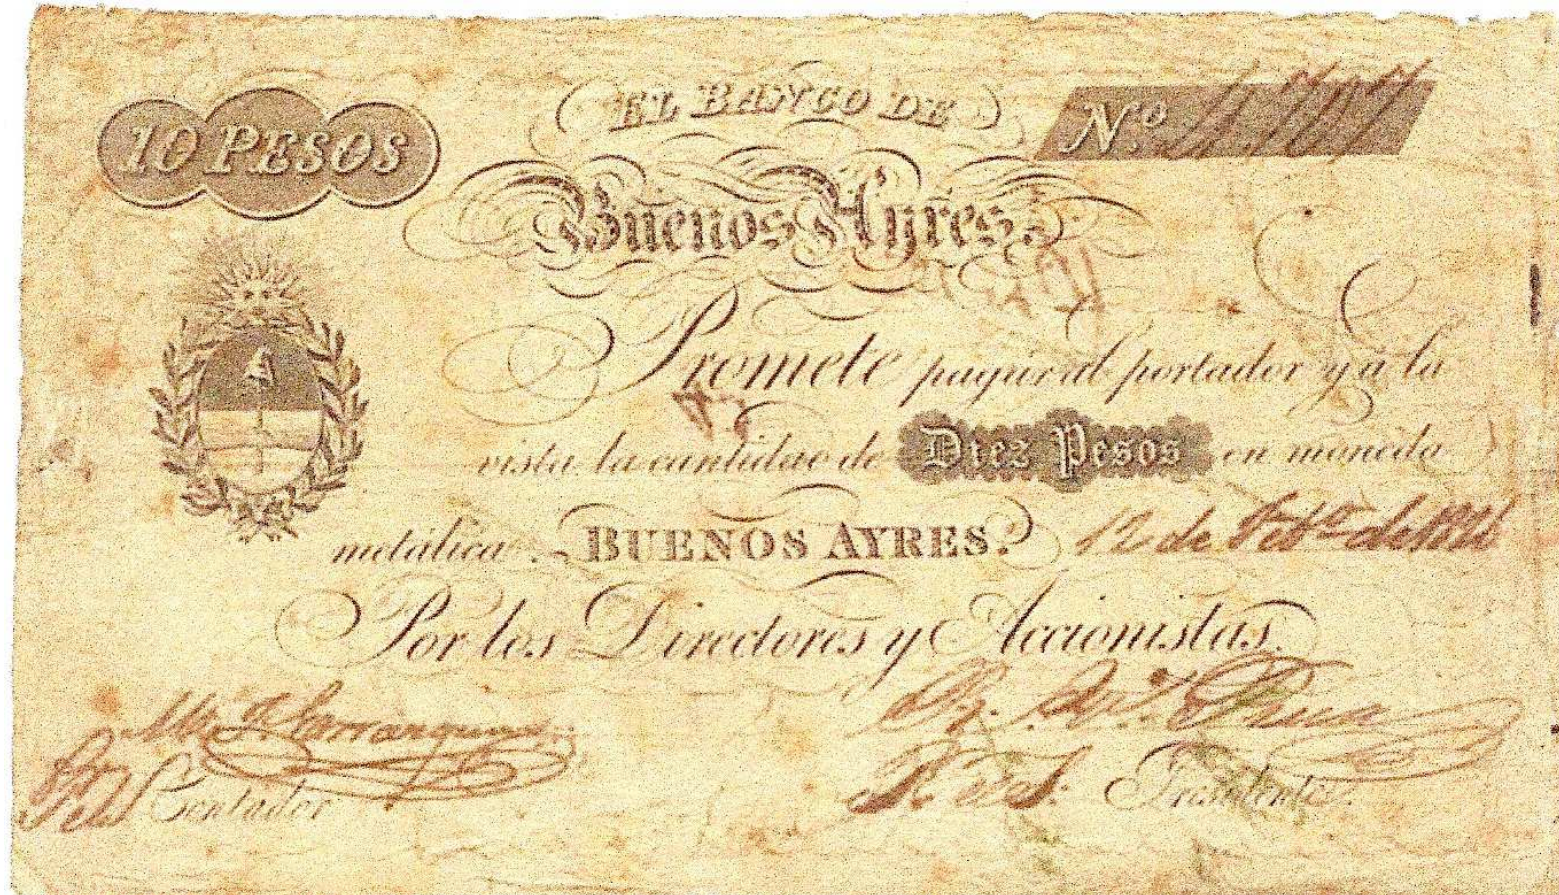 10 PESOS
EL BANCO DE
Nº
Buenos Ayres
Promete pagar al portador y a la
vista la cantidad de Diez Pesos en moneda
metálica. BUENOS AYRES. 12 de de
Por los Directores y Accionistas.
Contador
Presidente.